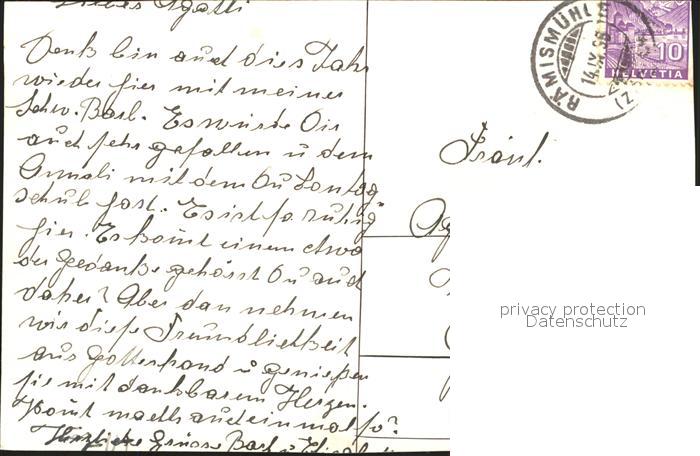 Liebes Agathli
Denk bin auch dies Jahr
wieder hier mit meiner
Schw. Barb. Es würde Dir
auch sehr gefallen u dem
Annali mit dem Du Sontag
schul hast. Es ist so ruhig
hier. Es komt einem etwa
der Gedanke gehörst Du auch
daher? Aber dan nehmen
wir diese Freundlichkeit
aus Gotteshand u genießen
sie mit dankbarem Herzen.
Komt machs auch einmal so?
Herzliche Grüsse Barb u
Fräul.
Ag
RÄMISMÜHLE
14.IX.36
10
HELVETIA
privacy protection
Datenschutz